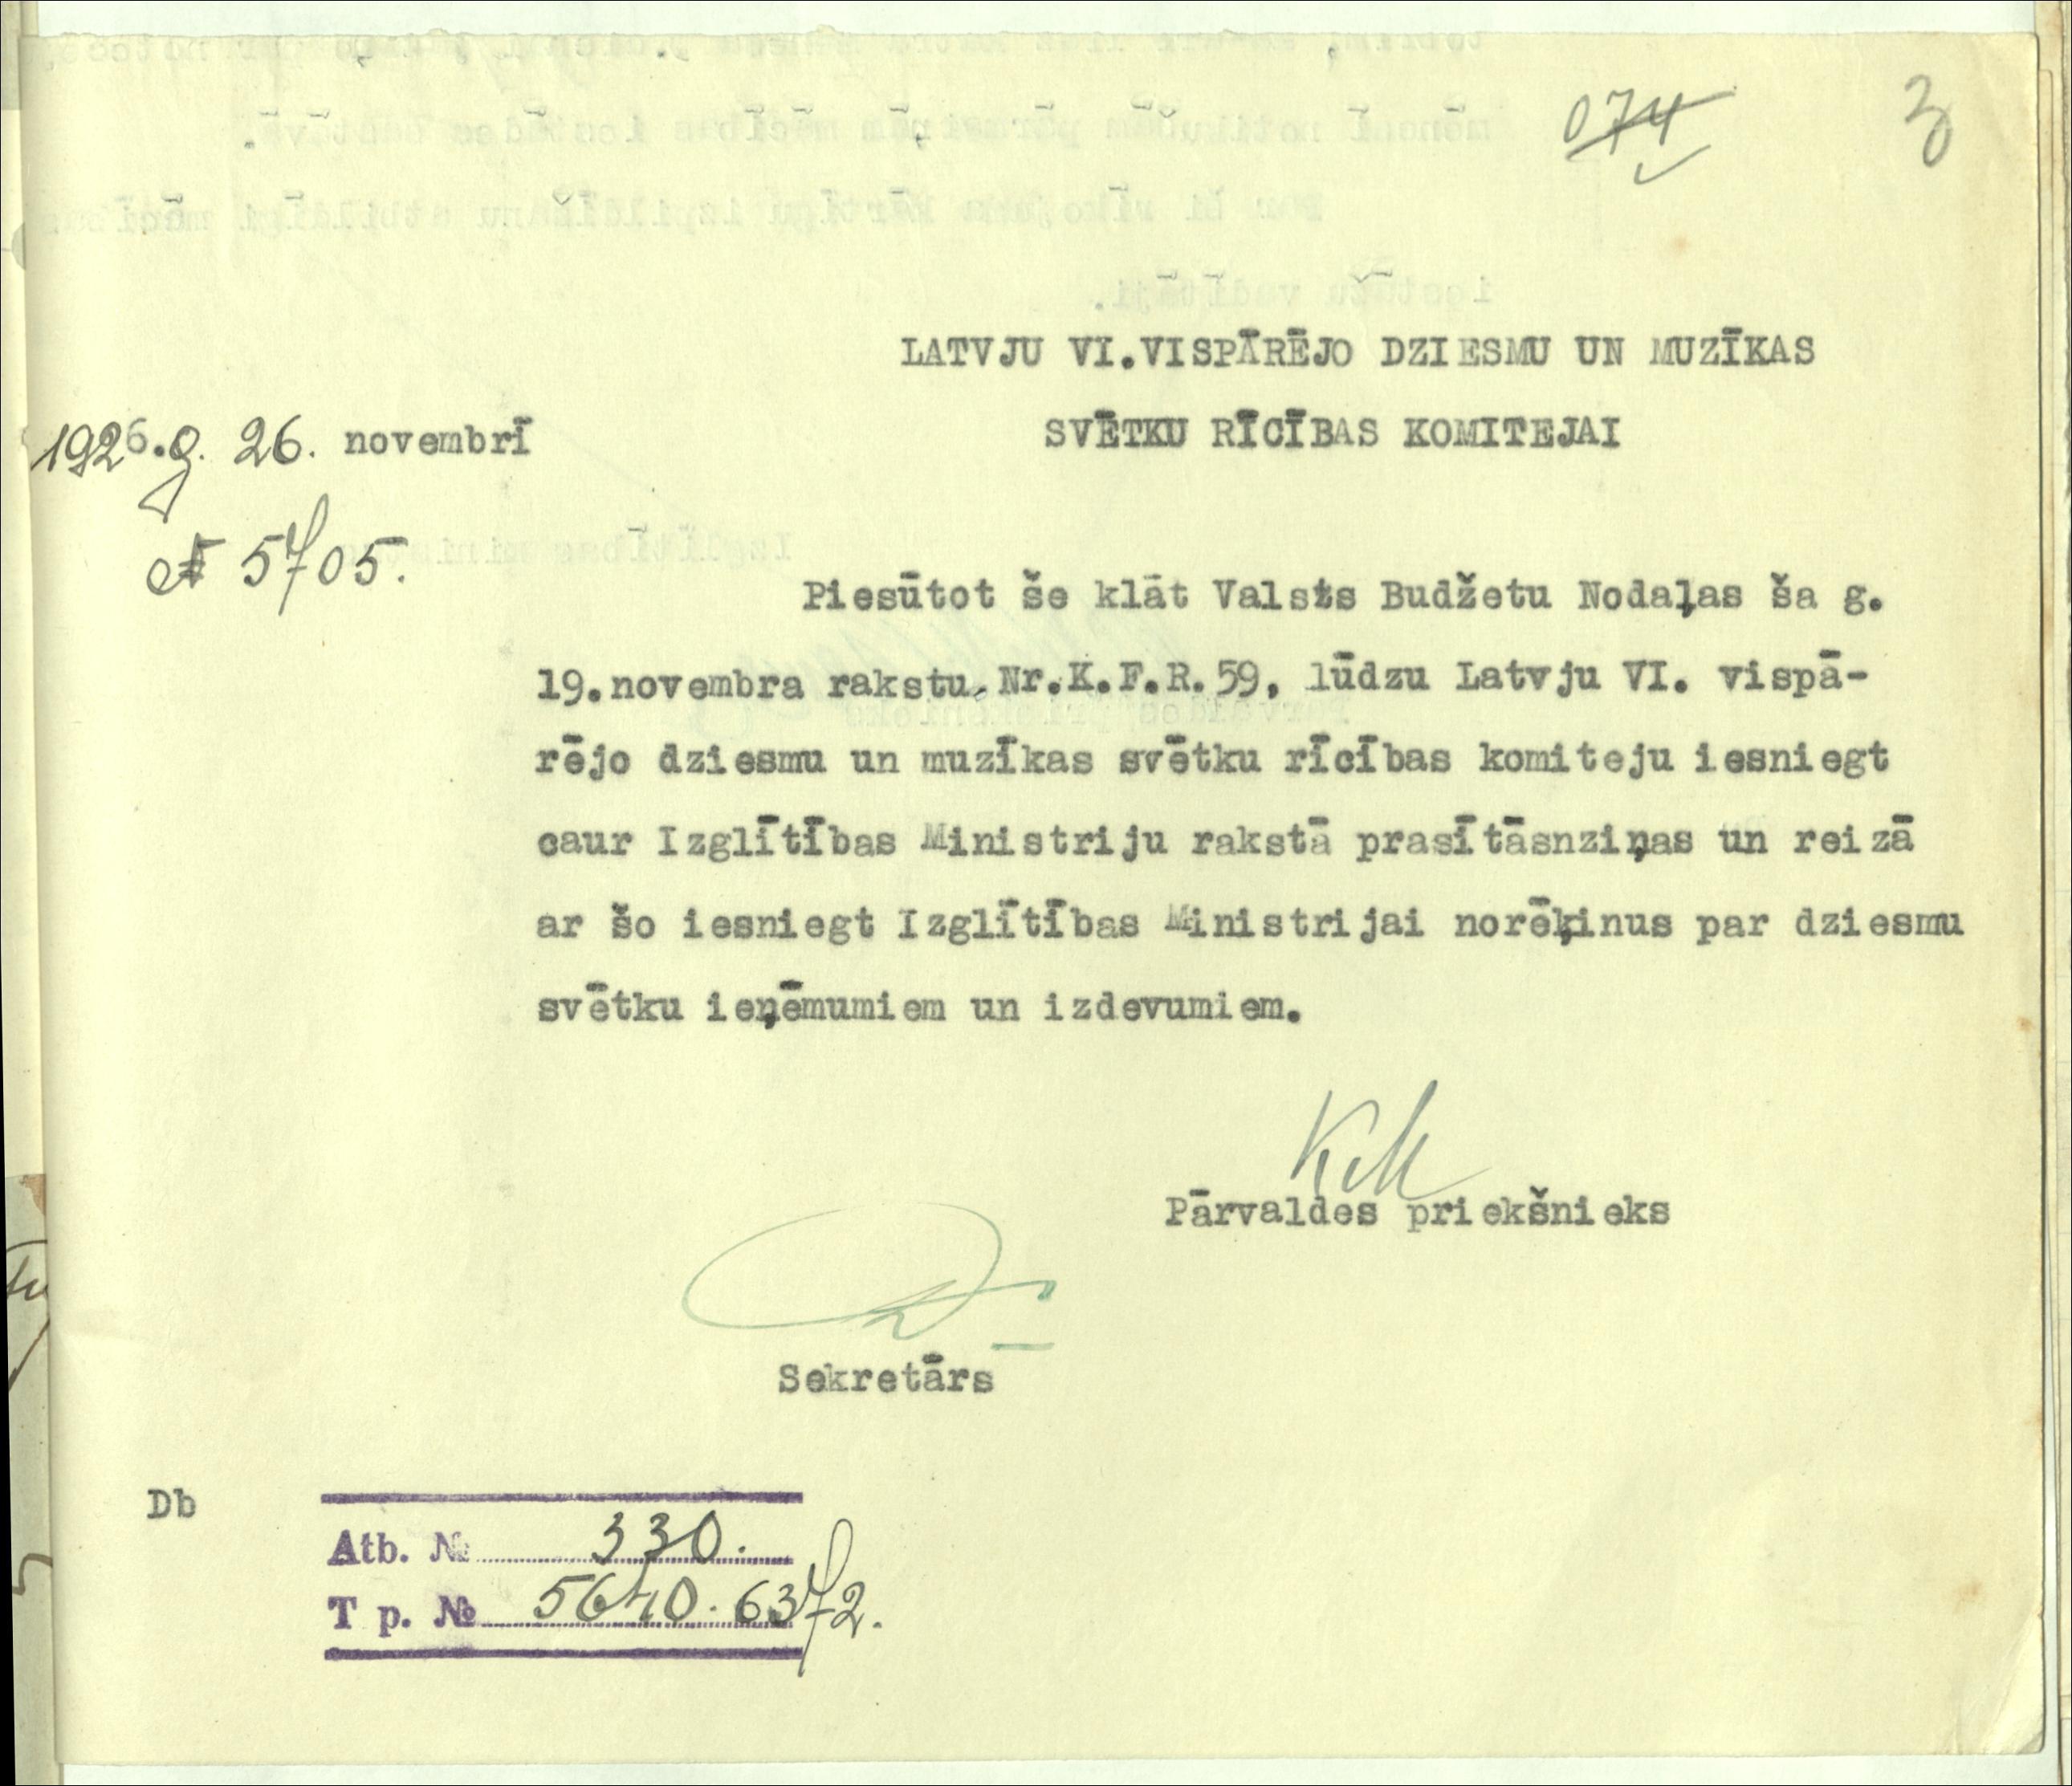 074
3
LATVJU VI.VISPĀRĒJO DZIESMU UN MUZĪKAS
SVĒTKU RĪCĪBAS KOMITEJAI
1926.g. 26. novembrī
№ 5705.
Piesūtot še klāt Valsts Budžetu Nodaļas ša g.
19.novembra rakstu, Nr.K.F.R.59, lūdzu Latvju VI. vispā-
rējo dziesmu un muzīkas svētku rīcības komiteju iesniegt
caur Izglītības Ministriju rakstā prasītāsnziņas un reizā
ar šo iesniegt Izglītības Ministrijai norēķinus par dziesmu
svētku ieņēmumiem un izdevumiem.
Pārvaldes priekšnieks
Sekretārs
Db
Atb. № 330.
T p. № 5640. 6372.